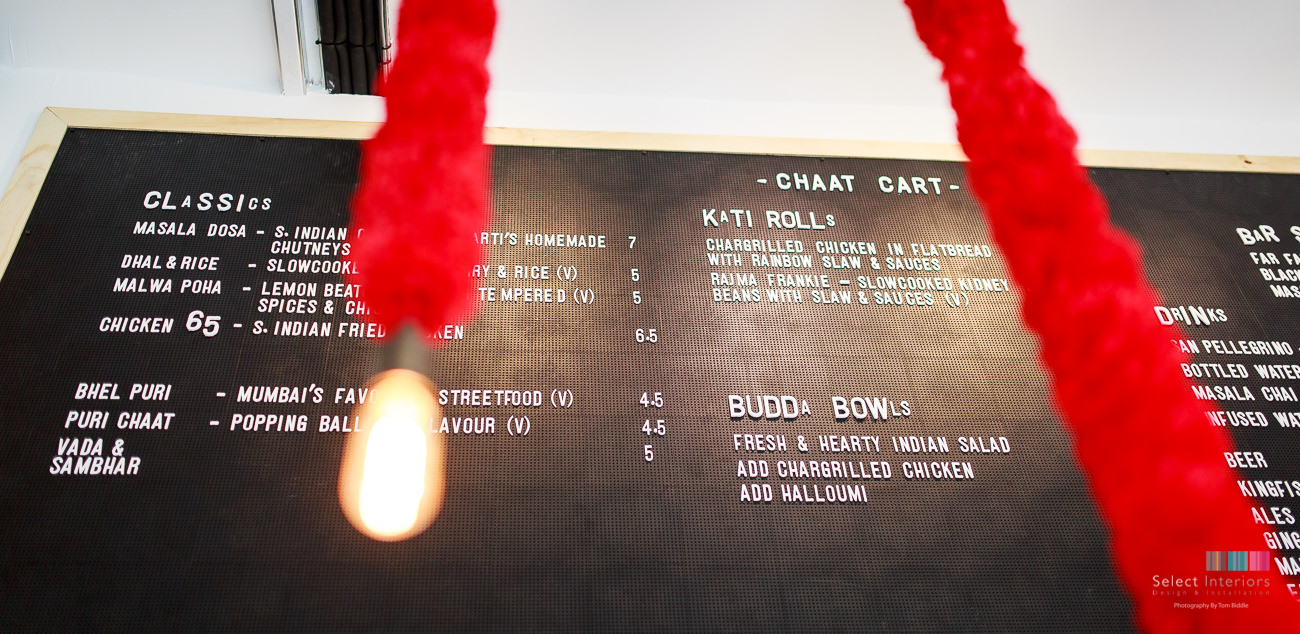 CLASSICS
MASALA DOSA - S. INDIAN HOMEMADE 7
CHUTNEYS
DHAL & RICE - & RICE (V) 5
MALWA POHA - LEMON TEMPERED (V) 5
SPICES &
CHICKEN 65 - S. INDIAN FRIED 6.5
BHEL PURI - MUMBAI'S STREETFOOD (V) 4.5
PURI CHAAT - POPPING (V) 4.5
VADA & 5
SAMBHAR
- CHAAT CART -
KATI ROLLS
CHARGRILLED CHICKEN IN FLATBREAD
WITH RAINBOW SLAW & SAUCES
RAJMA FRANKIE - SLOWCOOKED KIDNEY
BEANS WITH SLAW & SAUCES (V)
BUDDA BOWLS
FRESH & HEARTY INDIAN SALAD
ADD CHARGRILLED CHICKEN
ADD HALLOUMI
BAR
FAR
DRINKS
PELLEGRINO
BOTTLED
MASALA CHAI
BEER
ALES
Select Interiors
Design & Installation
Photography By Tom Biddle